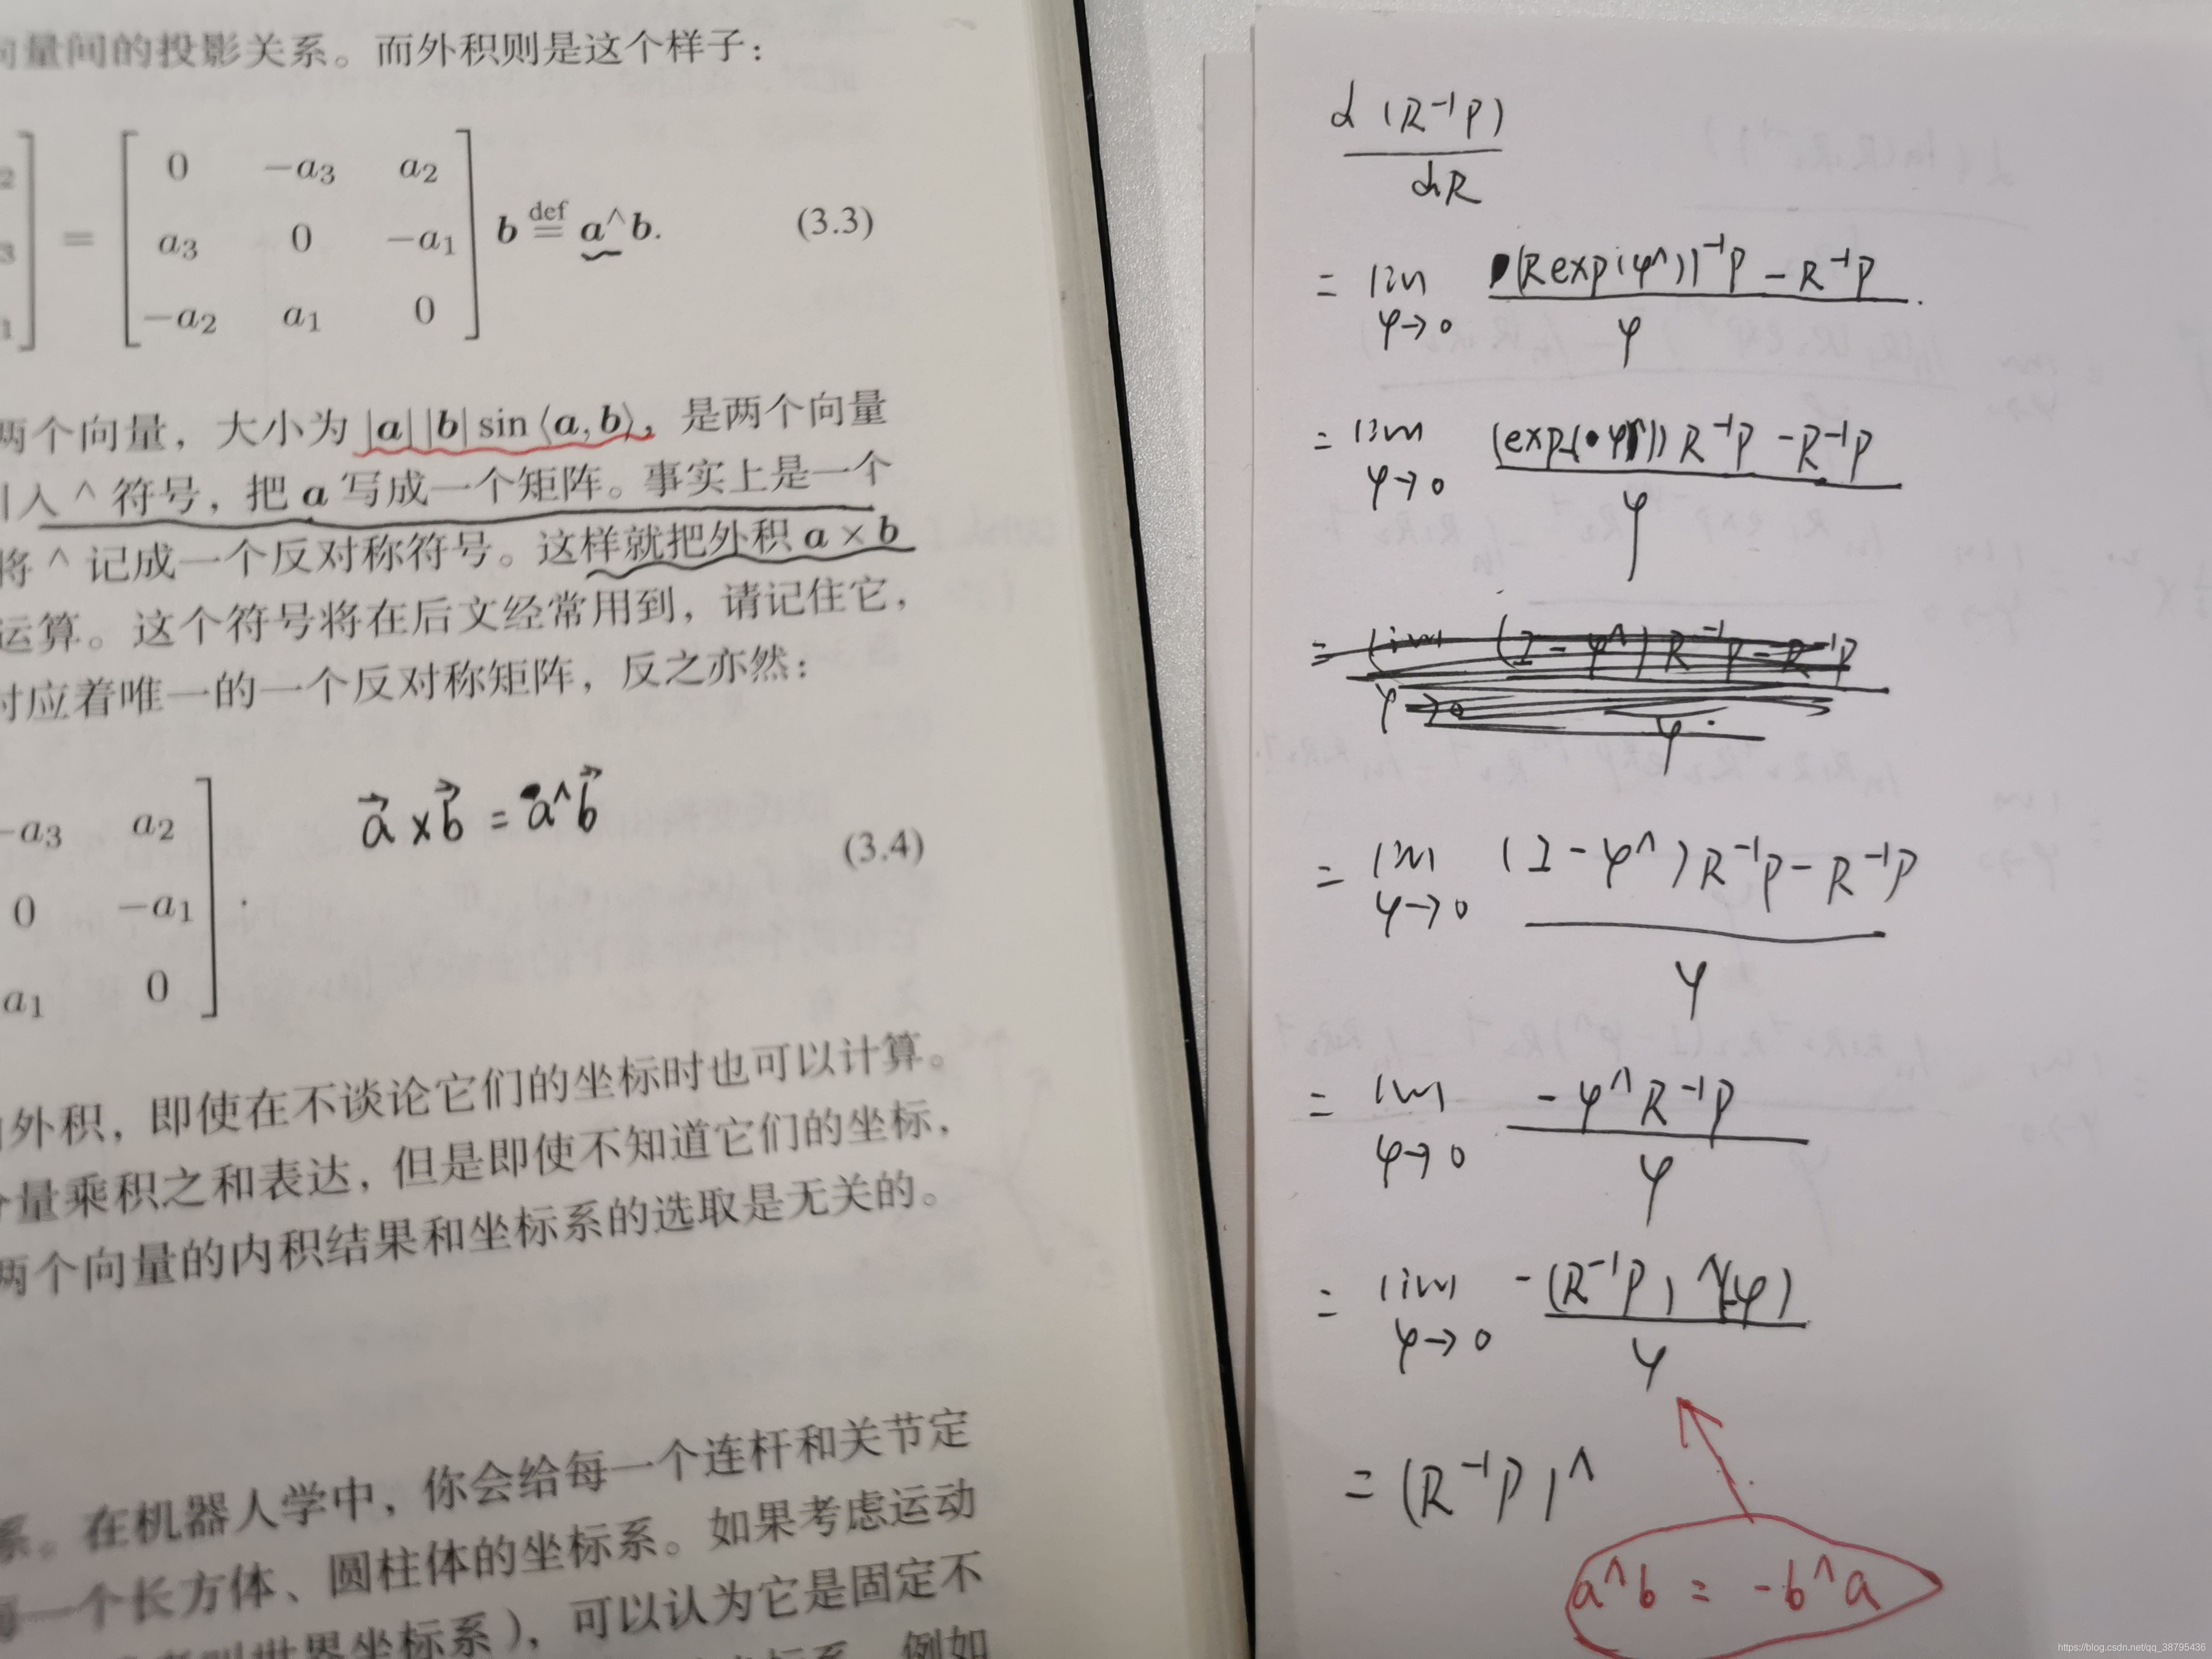 向量间的投影关系。而外积则是这个样子：
= [ 0 −a₃ a₂
a₃ 0 −a₁
−a₂ a₁ 0 ] b ≝ a^b. (3.3)
两个向量，大小为 |a| |b| sin ⟨a, b⟩，是两个向量
引入 ^ 符号，把 a 写成一个矩阵。事实上是一个
将 ^ 记成一个反对称符号。这样就把外积 a × b
运算。这个符号将在后文经常用到，请记住它，
对应着唯一的一个反对称矩阵，反之亦然：
−a₃ a₂
0 −a₁
a₁ 0 ] . (3.4)
a⃗ × b⃗ = a^b⃗
外积，即使在不谈论它们的坐标时也可以计算。
分量乘积之和表达，但是即使不知道它们的坐标，
两个向量的内积结果和坐标系的选取是无关的。
系。在机器人学中，你会给每一个连杆和关节定
一个长方体、圆柱体的坐标系。如果考虑运动
世界坐标系），可以认为它是固定不
坐标系。例如
d (R⁻¹p) / dR
= lim φ→0 ((R exp(φ^))⁻¹p − R⁻¹p) / φ
= lim φ→0 R⁻¹p − R⁻¹p / φ
= lim φ→0 (I − φ^) R⁻¹p − R⁻¹p / φ
= lim φ→0 (I − φ^) R⁻¹p − R⁻¹p / φ
= lim φ→0 −φ^R⁻¹p / φ
= lim φ→0 −(R⁻¹p)^(−φ) / φ
= (R⁻¹p)^
a^b = −b^a
https://blog.csdn.net/qq_38795436